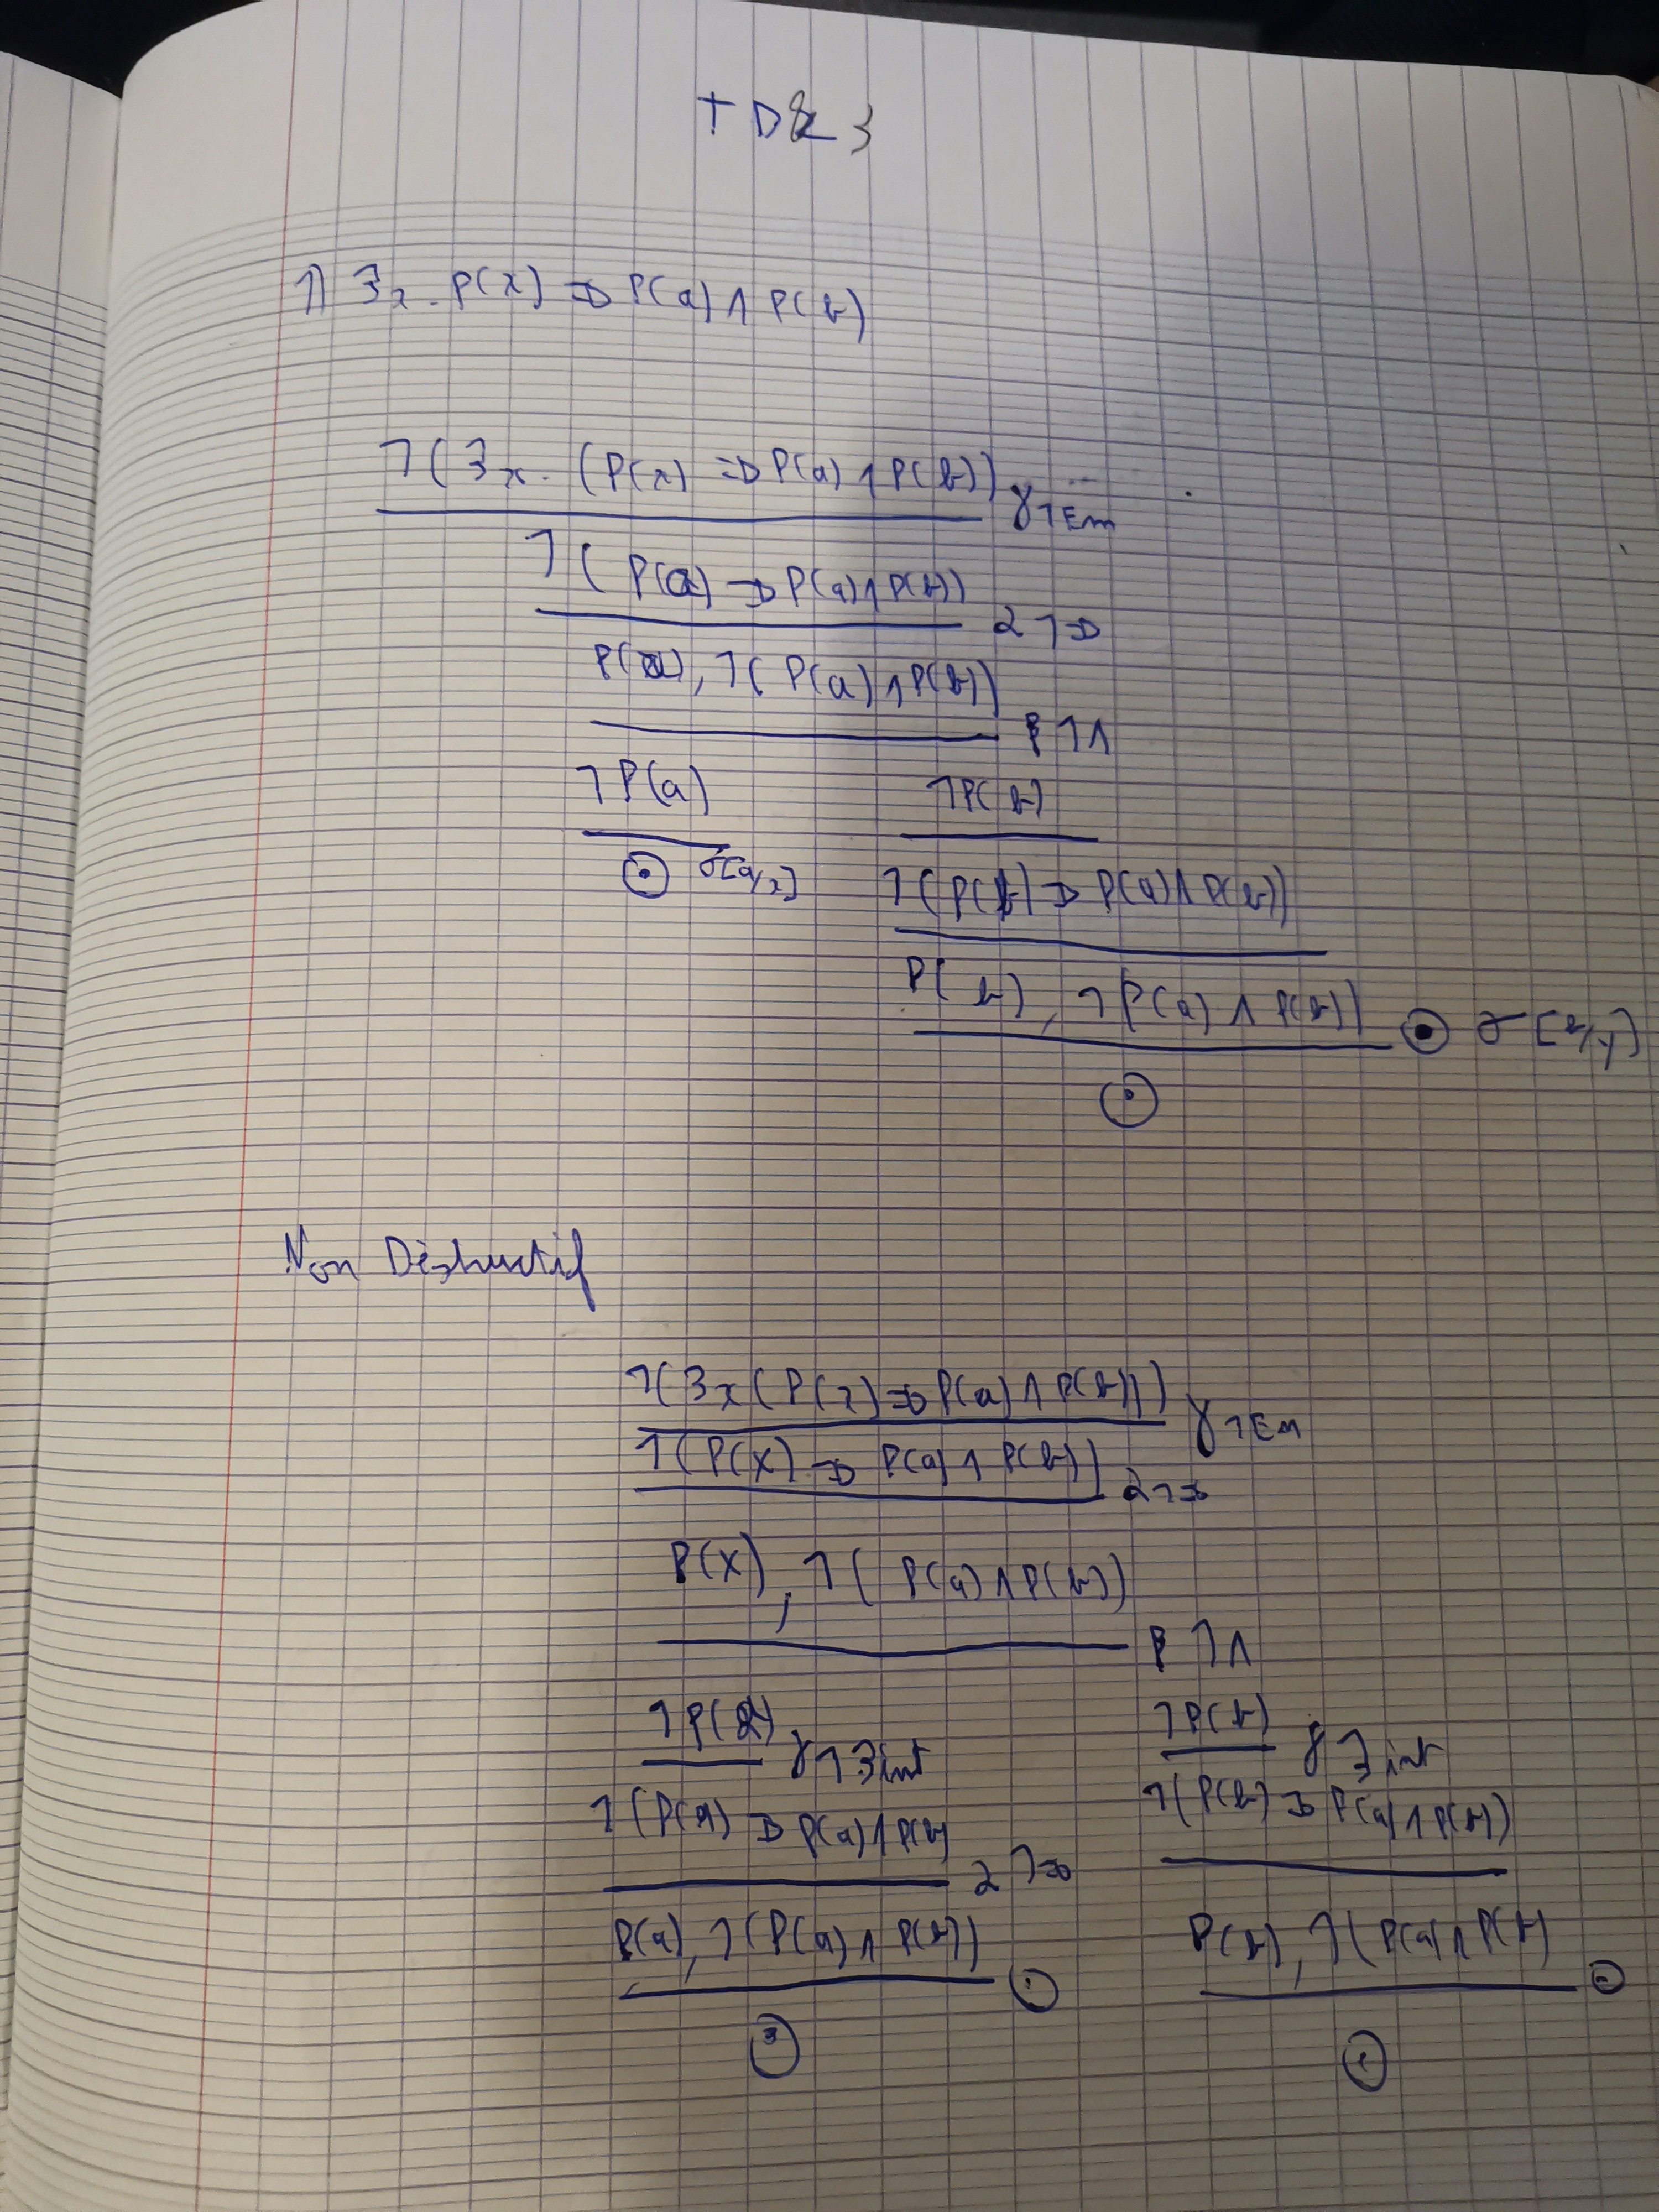 TD 3
1) ∃x. P(x) ⇒ P(a) ∧ P(b)
¬(∃x. (P(x) ⇒ P(a) ∧ P(b)) γ¬∃m
¬(P(a) ⇒ P(a) ∧ P(b)) α¬⇒
P(a), ¬(P(a) ∧ P(b)) β¬∧
¬P(a) ¬P(b)
⊙ σ[a/x] ¬(P(b) ⇒ P(a) ∧ P(b))
P(b), ¬(P(a) ∧ P(b)) ⊙ σ[b/y]
⊙
Non Destructif
¬(∃x(P(x) ⇒ P(a) ∧ P(b))) γ¬∃m
¬(P(X) ⇒ P(a) ∧ P(b)) α¬⇒
P(X), ¬(P(a) ∧ P(b)) β¬∧
¬P(a) γ¬∃int ¬P(b) γ∃int
¬(P(a) ⇒ P(a) ∧ P(b) α¬⇒ ¬(P(b) ⇒ P(a) ∧ P(b))
P(a), ¬(P(a) ∧ P(b)) ⊙ P(b), ¬(P(a) ∧ P(b) ⊙
⊙ ⊙